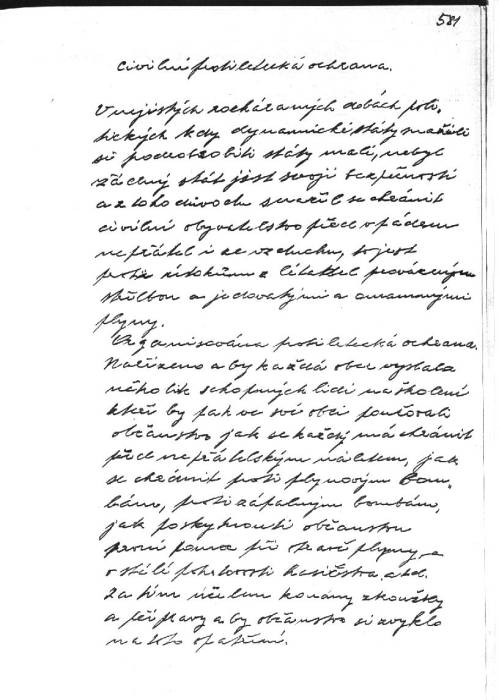 581
Civilní protiletecká ochrana.
V nejistých rozháraných dobách poli-
tických kdy dynamické státy snažili
si podrobiti státy malí, nebyl
žádný stát jist svojí bezpečností
a z toho důvodu snažil se chránit
civilní obyvatelstvo před vpádem
nepřátel i ze vzduchu, to jest
proti útokům z letadel prováděným
střelbou a jedovatými a omamnými
plyny.
Organisována protiletecká ochrana.
Nařízeno aby každá obec vyslala
několik schopných lidí na školení
kteří by pak ve své obci poučovali
občanstvo jak se každý má chránit
před nepřátelským náletem, jak
se chránit proti plynovým bom-
bám, proti zápalným bombám,
jak poskytnouti občanstvu
první pomoc při otravě plyny, a
o stálé pohotovosti hasičstva, atd.
Za tím účelem konány zkoušky
a přípravy aby občanstvo si zvyklo
na toto opatření.